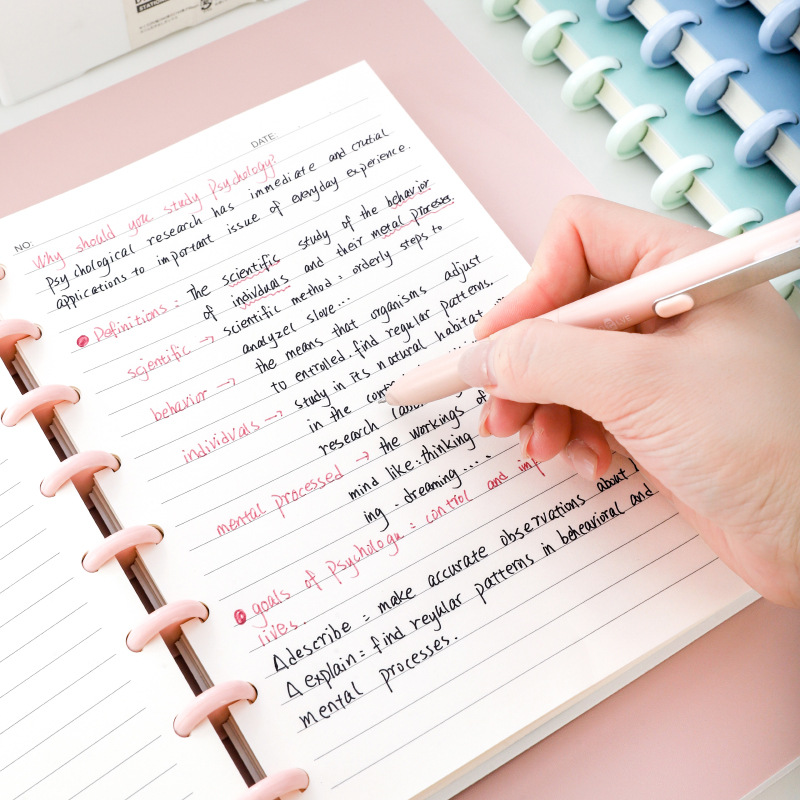 DATE:
NO:
Why should you study Psychology?
Psychological research has immediate and crutial
applications to important issue of everyday experience.
Definitions : The scientific study of the behavior
of indivduals and their metal processes.
scientific → scientific method : orderly steps to
analyzel slove...
behavior → the means that organisms adjust
to entrolled. find regular patterns.
individvals → study in its natural habitat
in the
research
mental processed → the workings of
mind like: thinking
ing. dreaming....
goals of psychologu : control and
lives.
Δdescribe : make accurate observations about
Δ explain : find reyular patterns in beheavioral and
mental processes.